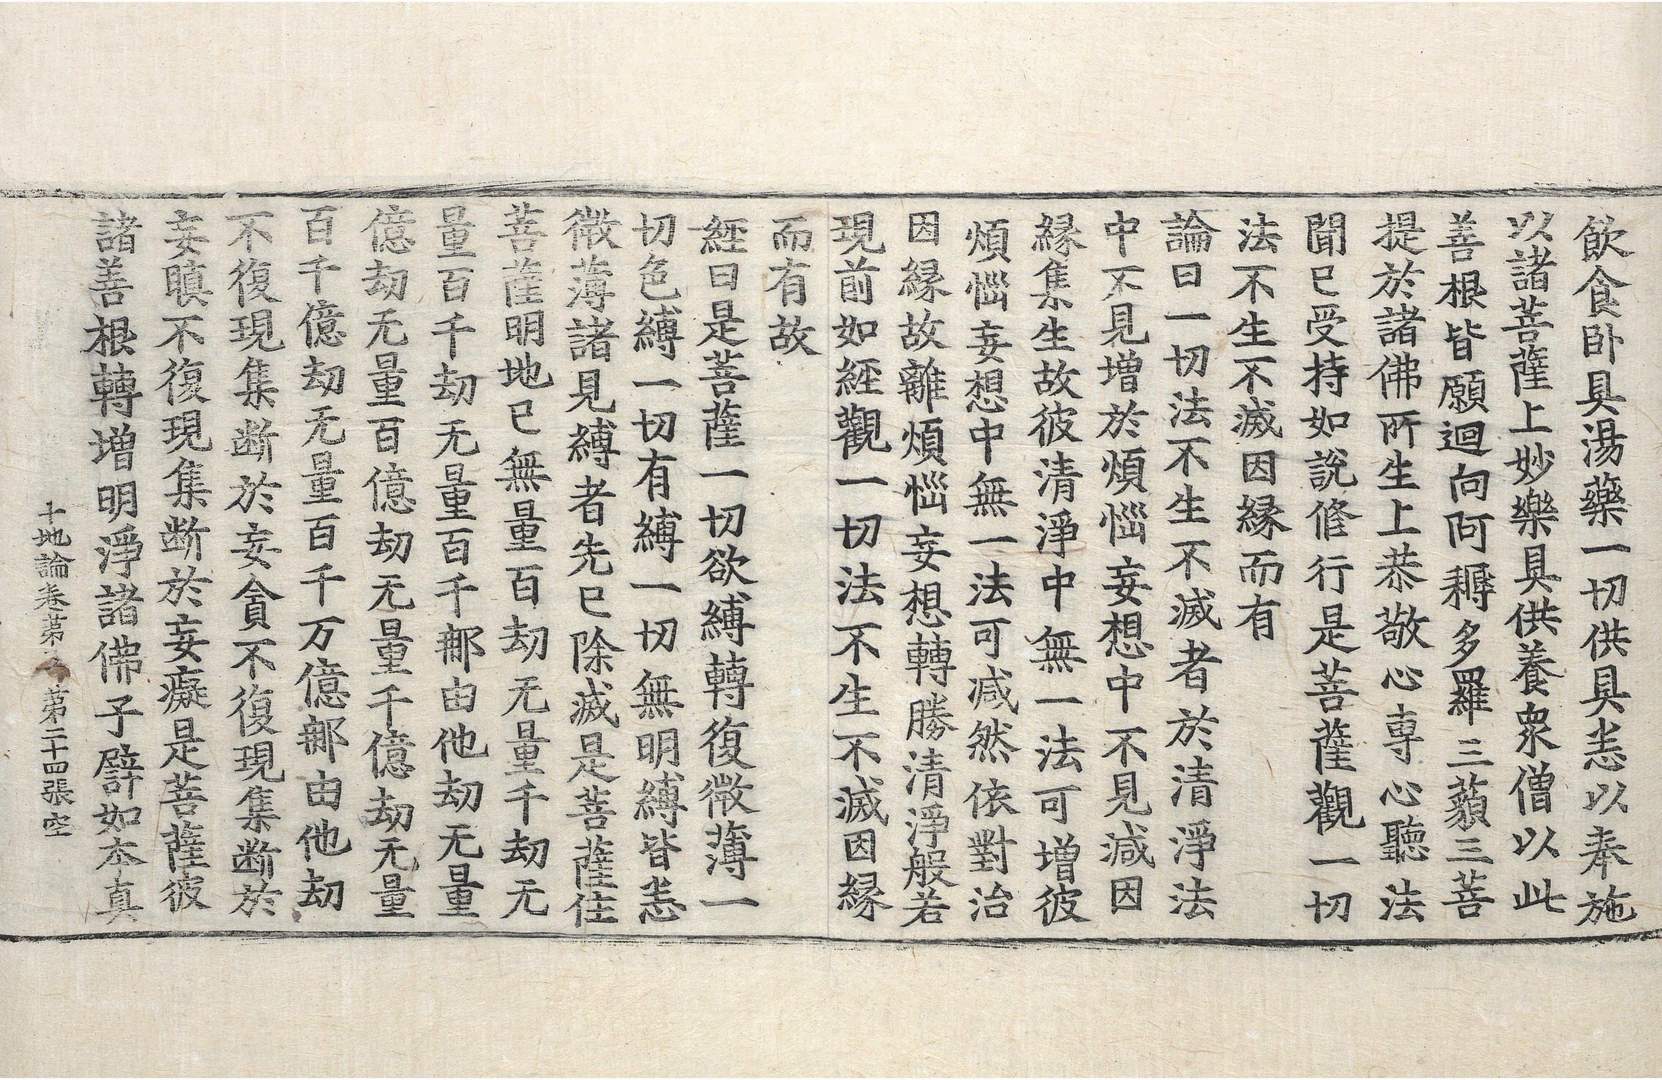 飲食卧具湯藥一切供具恙以奉施
以諸菩薩上妙樂具供養衆僧以此
善根皆願迴向阿耨多羅三藐三菩
提於諸佛所生上恭敬心専心聽法
聞已受持如說俢行是菩薩觀一切
法不生不滅因緣而有
論曰一切法不生不滅者於清淨法
中不見增於煩惱妄想中不見減因
緣集生故彼清淨中無一法可增彼
煩惱妄想中無一法可减然依對治
因緣故離煩惱妄想轉勝清淨般若
現前如經觀一切法不生不滅因緣
而有故
經曰是菩薩一切欲縛轉復微薄一
切色縛一切有縛一切無明縛皆恙
微薄諸見縛者先已除滅是菩薩住
菩薩明地已無量百劫无量千劫无
量百千劫无量百千那由他劫无量
億劫无量百億劫无量千億劫无量
百千億劫无量百千万億那由他劫
不復現集断於妄貪不復現集断於
妄瞋不復現集断於妄癡是菩薩彼
諸善根轉增明淨諸佛子譬如本真
十地論卷第 第二十四張 空